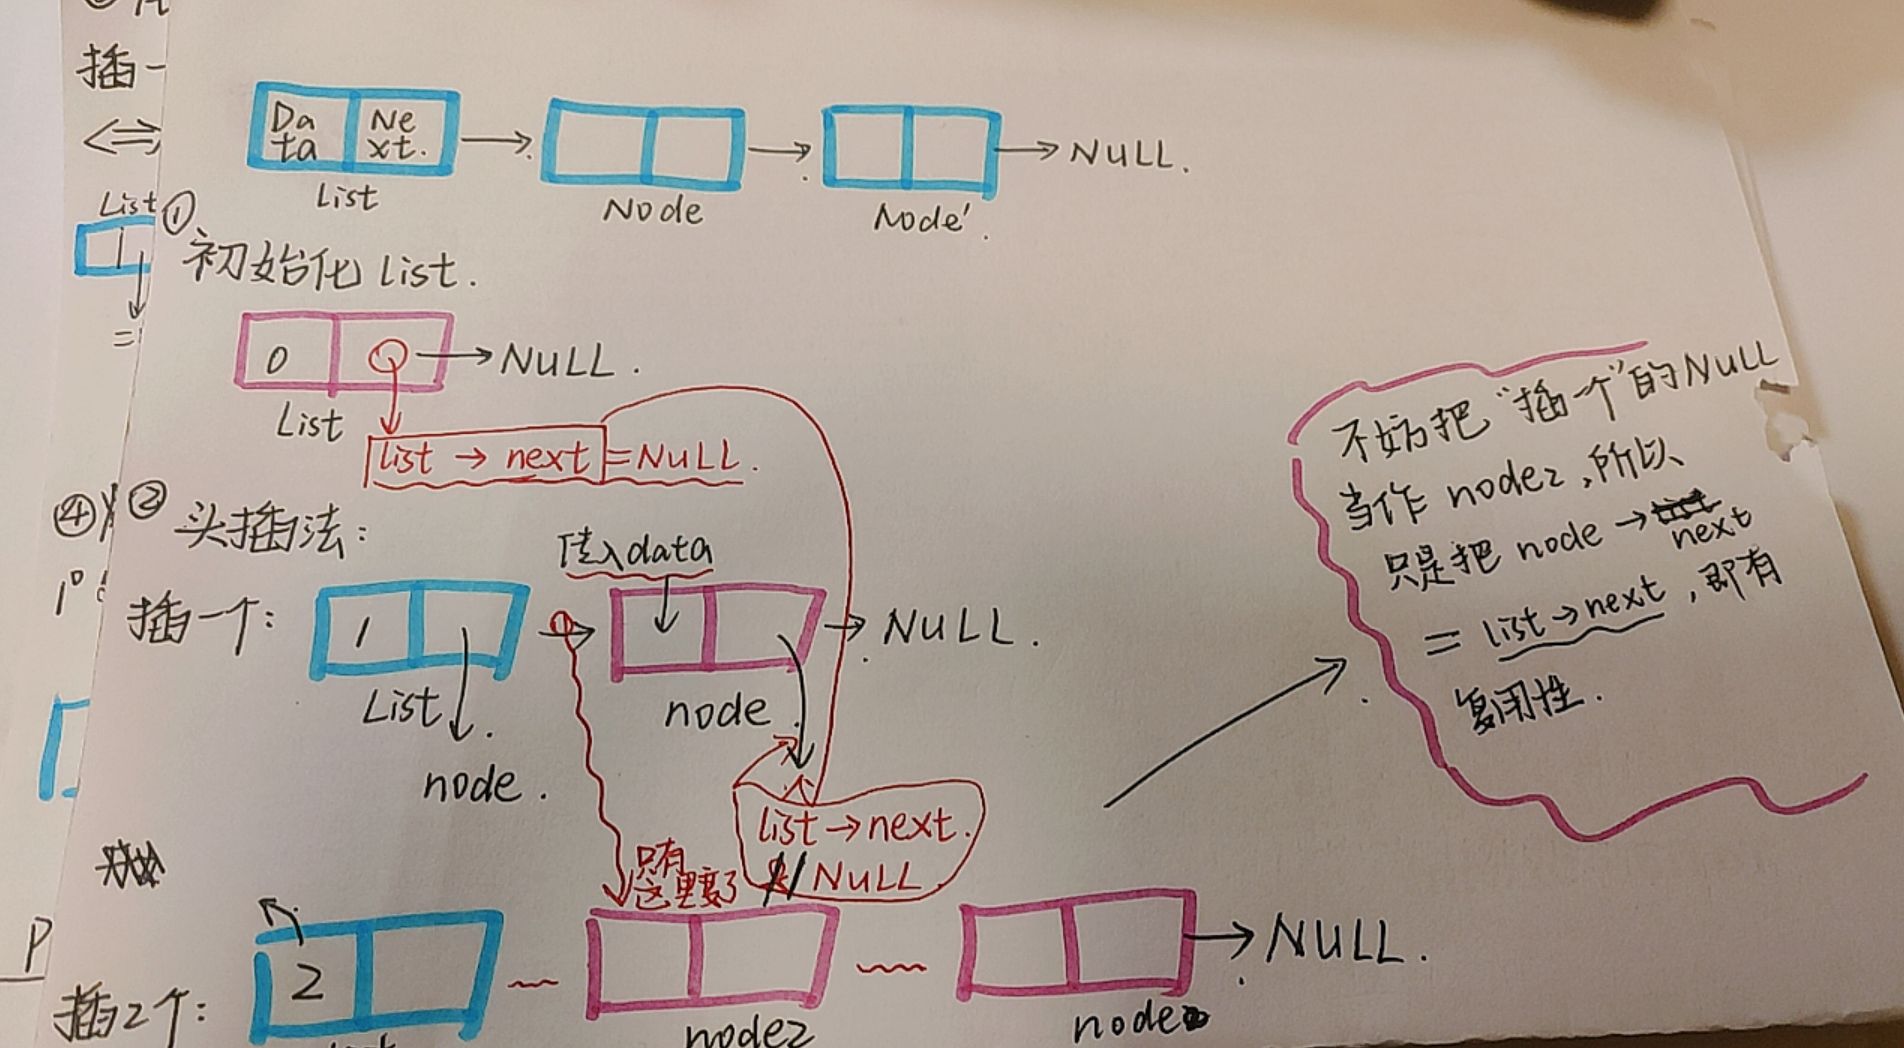 插一
<=>
List
Da
ta
Ne
xt.
List
Node
Node'.
NULL.
①
初始化 List.
0
NULL.
List
list → next = NULL.
④
② 头插法:
传入data
插一个:
1
List
node.
node.
NULL.
list → next.
NULL
只有
这里变了
不妨把"插一个"的NULL
当作 node2,所以
只是把 node → next
= list → next, 即有
复用性.
P
插2个:
2
node2
node
NULL.